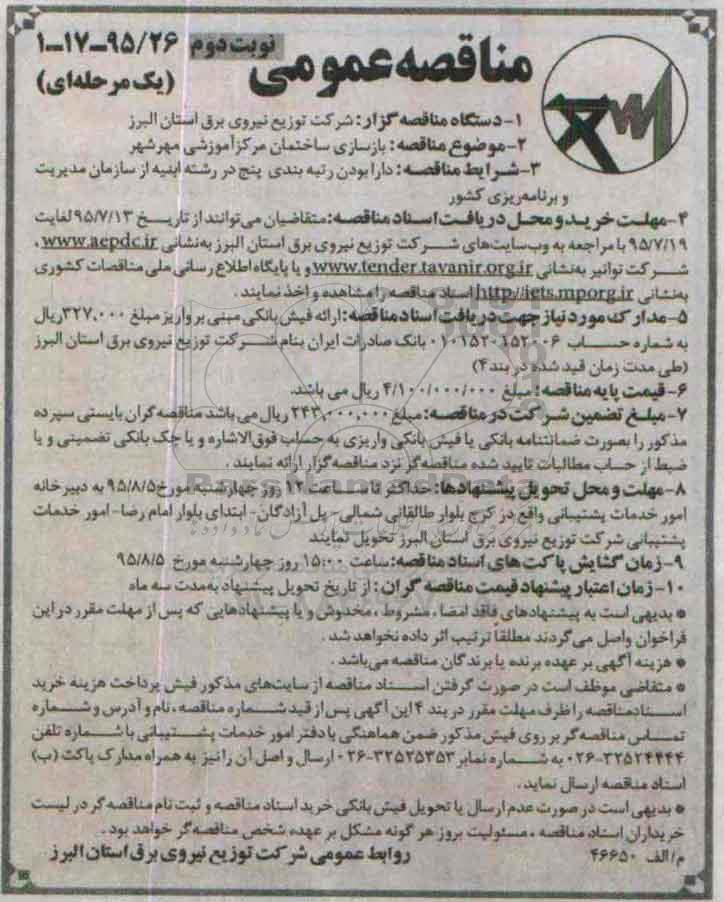 مناقصه عمومی نوبت دوم ۹۵/۲۶-۱۷-۱
(یک مرحله‌ای)
۱- دستگاه مناقصه گزار: شرکت توزیع نیروی برق استان البرز
۲- موضوع مناقصه: بازسازی ساختمان مرکز آموزشی مهرشهر
۳- شرایط مناقصه: دارا بودن رتبه بندی پنج در رشته ابنیه از سازمان مدیریت
و برنامه‌ریزی کشور
۴- مهلت خرید و محل دریافت اسناد مناقصه: متقاضیان می‌توانند از تاریخ ۹۵/۷/۱۳ لغایت
۹۵/۷/۱۹ با مراجعه به وب‌سایت‌های شرکت توزیع نیروی برق استان البرز به‌نشانی www.aepdc.ir ،
شرکت توانیر به‌نشانی www.tender.tavanir.org.ir و یا پایگاه اطلاع رسانی ملی مناقصات کشوری
به‌نشانی http://iets.mporg.ir اسناد مناقصه را مشاهده و اخذ نمایند .
۵- مدارک مورد نیاز جهت دریافت اسناد مناقصه: ارائه فیش بانکی مبنی بر واریز مبلغ ۳۲۷,۰۰۰ ریال
به شماره حساب ۰۱۰۱۵۲۰۱۵۲۰۰۶ بانک صادرات ایران بنام شرکت توزیع نیروی برق استان البرز
(طی مدت زمان قید شده در بند ۴)
۶- قیمت پایه مناقصه: مبلغ ۴/۱۰۰/۰۰۰/۰۰۰ ریال می باشد.
۷- مبلغ تضمین شرکت در مناقصه: مبلغ ۲۴۳,۰۰۰,۰۰۰ ریال می باشد مناقصه گران بایستی سپرده
مذکور را بصورت ضمانتنامه بانکی یا فیش بانکی واریزی به حساب فوق‌الاشاره و یا چک بانکی تضمینی و یا
ضبط از حساب مطالبات تایید شده مناقصه‌گر نزد مناقصه‌گزار ارائه نمایند .
۸- مهلت و محل تحویل پیشنهادها: حداکثر تا ساعت ۱۲ روز چهارشنبه مورخ ۹۵/۸/۵ به دبیرخانه
امور خدمات پشتیبانی واقع در کرج بلوار طالقانی شمالی- پل آزادگان- ابتدای بلوار امام رضا- امور خدمات
پشتیبانی شرکت توزیع نیروی برق استان البرز تحویل نمایند
۹- زمان گشایش پاکت های اسناد مناقصه: ساعت ۱۵:۰۰ روز چهارشنبه مورخ ۹۵/۸/۵
۱۰- زمان اعتبار پیشنهاد قیمت مناقصه گران: از تاریخ تحویل پیشنهاد به‌مدت سه ماه
* بدیهی است به پیشنهادهای فاقد امضا ، مشروط ، مخدوش و یا پیشنهادهایی که پس از مهلت مقرر در این
فراخوان واصل می‌گردند مطلقاً ترتیب اثر داده نخواهد شد .
* هزینه آگهی بر عهده برنده یا برندگان مناقصه می‌باشد .
* متقاضی موظف است در صورت گرفتن اسناد مناقصه از سایت‌های مذکور فیش پرداخت هزینه خرید
اسناد مناقصه را ظرف مهلت مقرر در بند ۴ این آگهی پس از قید شماره مناقصه ، نام و آدرس و شماره
تماس مناقصه‌گر بر روی فیش مذکور ضمن هماهنگی با دفتر امور خدمات پشتیبانی با شماره تلفن
۰۲۶-۳۲۵۲۴۴۴۴ به شماره نمابر ۰۲۶-۳۲۵۲۵۳۵۳ ارسال و اصل آن را نیز به همراه مدارک پاکت (ب)
اسناد مناقصه ارسال نماید .
* بدیهی است در صورت عدم ارسال یا تحویل فیش بانکی خرید اسناد مناقصه و ثبت نام مناقصه گر در لیست
خریداران اسناد مناقصه ، مسئولیت بروز هر گونه مشکل بر عهده شخص مناقصه‌گر خواهد بود .
م/الف ۴۶۶۵۰ روابط عمومی شرکت توزیع نیروی برق استان البرز